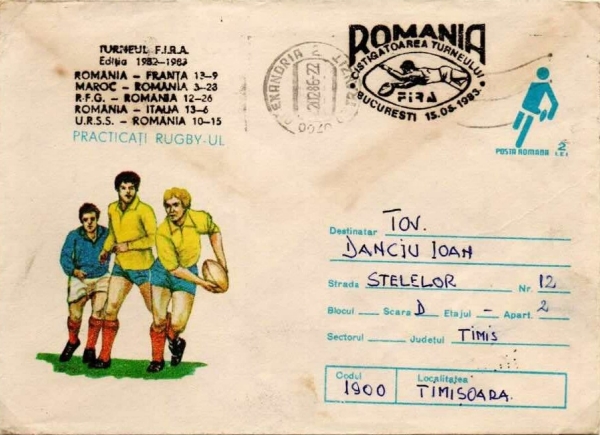 TURNEUL F.I.R.A.
Ediția 1982-1983
ROMÂNIA - FRANȚA 13-9
MAROC - ROMÂNIA 3-23
R.F.G. - ROMÂNIA 12-26
ROMÂNIA - ITALIA 13-6
U.R.S.S. - ROMÂNIA 10-15
PRACTICAȚI RUGBY-UL
ROMANIA
CISTIGATOAREA TURNEULUI
FIRA
BUCUREȘTI 15.05.1983
POSTA ROMANA 2 LEI
Destinatar TOV.
DANCIU IOAN
Strada STELELOR Nr. 12
Blocul - Scara D Etajul - Apart. 2
Sectorul - Județul TIMIȘ
Codul Localitatea
1900 TIMIȘOARA